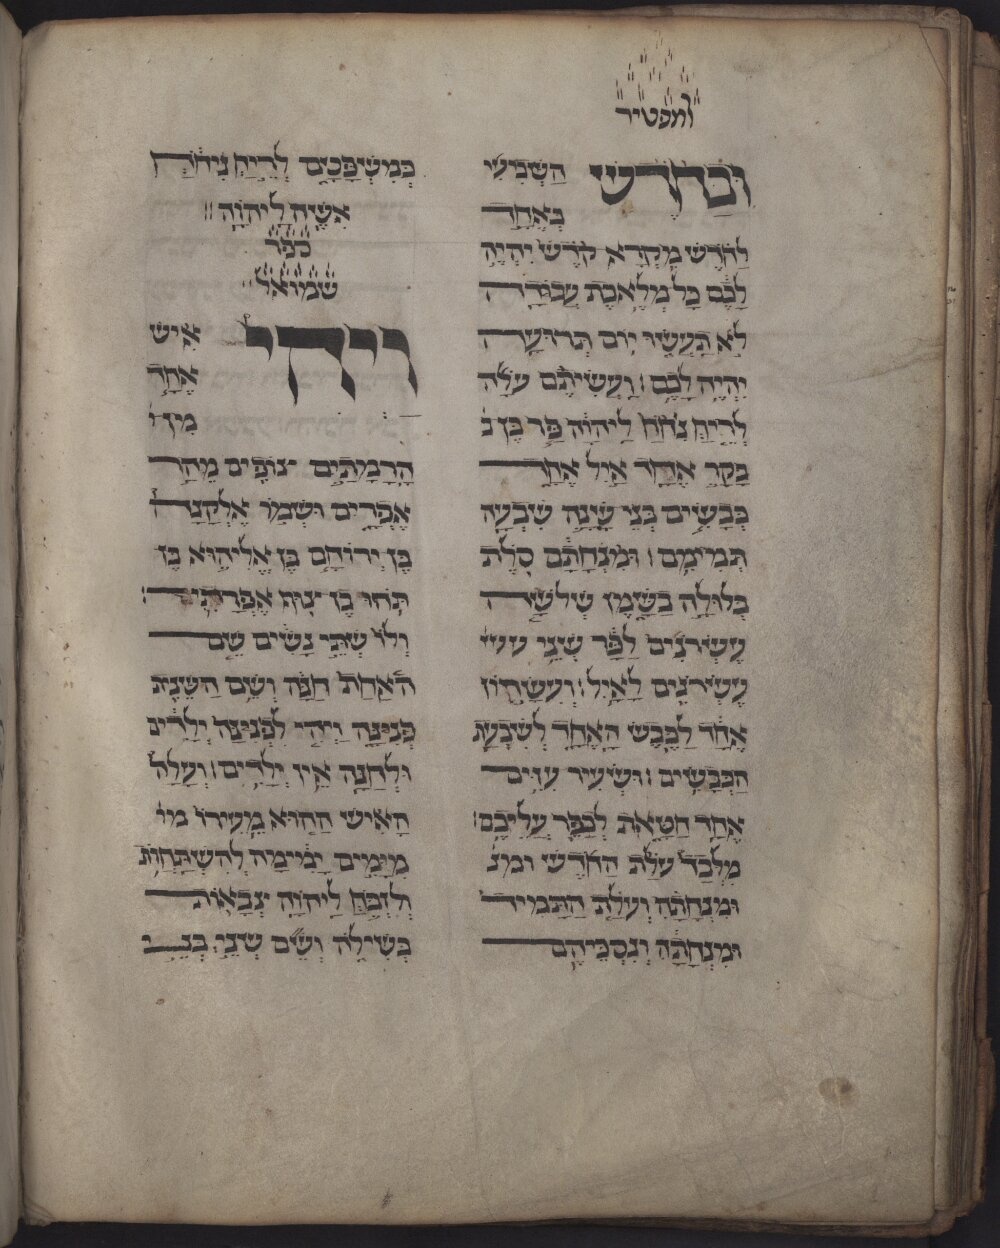 ומפטיר
וּבַחֹדֶשׁ הַשְּׁבִיעִי
בְּאֶחָד
לַחֹדֶשׁ מִקְרָא קֹדֶשׁ יִהְיֶה
לָכֶם כָּל מְלֶאכֶת עֲבוֹדָה
לֹא תַעֲשׂוּ יוֹם תְּרוּעָה
יִהְיֶה לָכֶם׃ וַעֲשִׂיתֶם עֹלָה
לְרֵיחַ נִחֹחַ לַיהוָה פַּר בֶּן ב
בָּקָר אֶחָד אַיִל אֶחָד
כְּבָשִׂים בְּנֵי שָׁנָה שִׁבְעָה
תְּמִימִם׃ וּמִנְחָתָם סֹלֶת
בְּלוּלָה בַשָּׁמֶן שְׁלֹשָׁה
עֶשְׂרֹנִים לַפָּר שְׁנֵי עש
עֶשְׂרֹנִים לָאָיִל׃ וְעִשָּׂרוֹן
אֶחָד לַכֶּבֶשׂ הָאֶחָד לְשִׁבְעַת
הַכְּבָשִׂים׃ וּשְׂעִיר עִזִּים
אֶחָד חַטָּאת לְכַפֵּר עֲלֵיכֶם׃
מִלְּבַד עֹלַת הַחֹדֶשׁ ומנ
וּמִנְחָתָהּ וְעֹלַת הַתָּמִיד
וּמִנְחָתָהּ וְנִסְכֵּיהֶם
כְּמִשְׁפָּטָם לְרֵיחַ נִיחֹחַ
אִשֶּׁה לַיהוָה׃
ספר
שמואל
וַיְהִי אִישׁ
אֶחָד
מִן
הָרָמָתַיִם צוֹפִים מֵהַר
אֶפְרָיִם וּשְׁמוֹ אֶלְקָנָה
בֶּן יְרוֹחָם בֶּן אֱלִיהוּא בֶּן
תֹּחוּ בֶן צוּף אֶפְרָתִי׃
וְלוֹ שְׁתֵּי נָשִׁים שֵׁם
הָאַחַת חַנָּה וְשֵׁם הַשֵּׁנִית
פְּנִנָּה וַיְהִי לִפְנִנָּה יְלָדִים
וּלְחַנָּה אֵין יְלָדִים׃ וְעָלָה
הָאִישׁ הַהוּא מֵעִירוֹ מי
מִיָּמִים יָמִימָה לְהִשְׁתַּחֲוֹת
וְלִזְבֹּחַ לַיהוָה צְבָאוֹת
בְּשִׁילֹה וְשָׁם שְׁנֵי בְנֵי